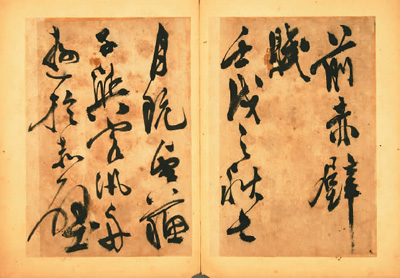 前赤壁
賦
壬戌之秋七
月既望蘇
子與客汎舟
遊於赤壁